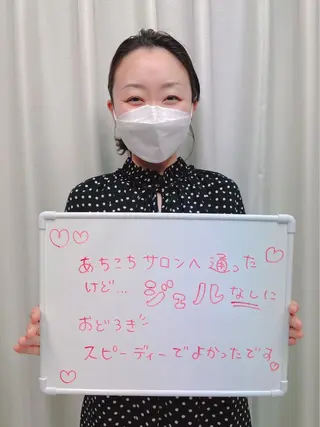 あちこちサロンへ通った
けど… ジェルなしに
おどろき!!
スピーディーでよかったです